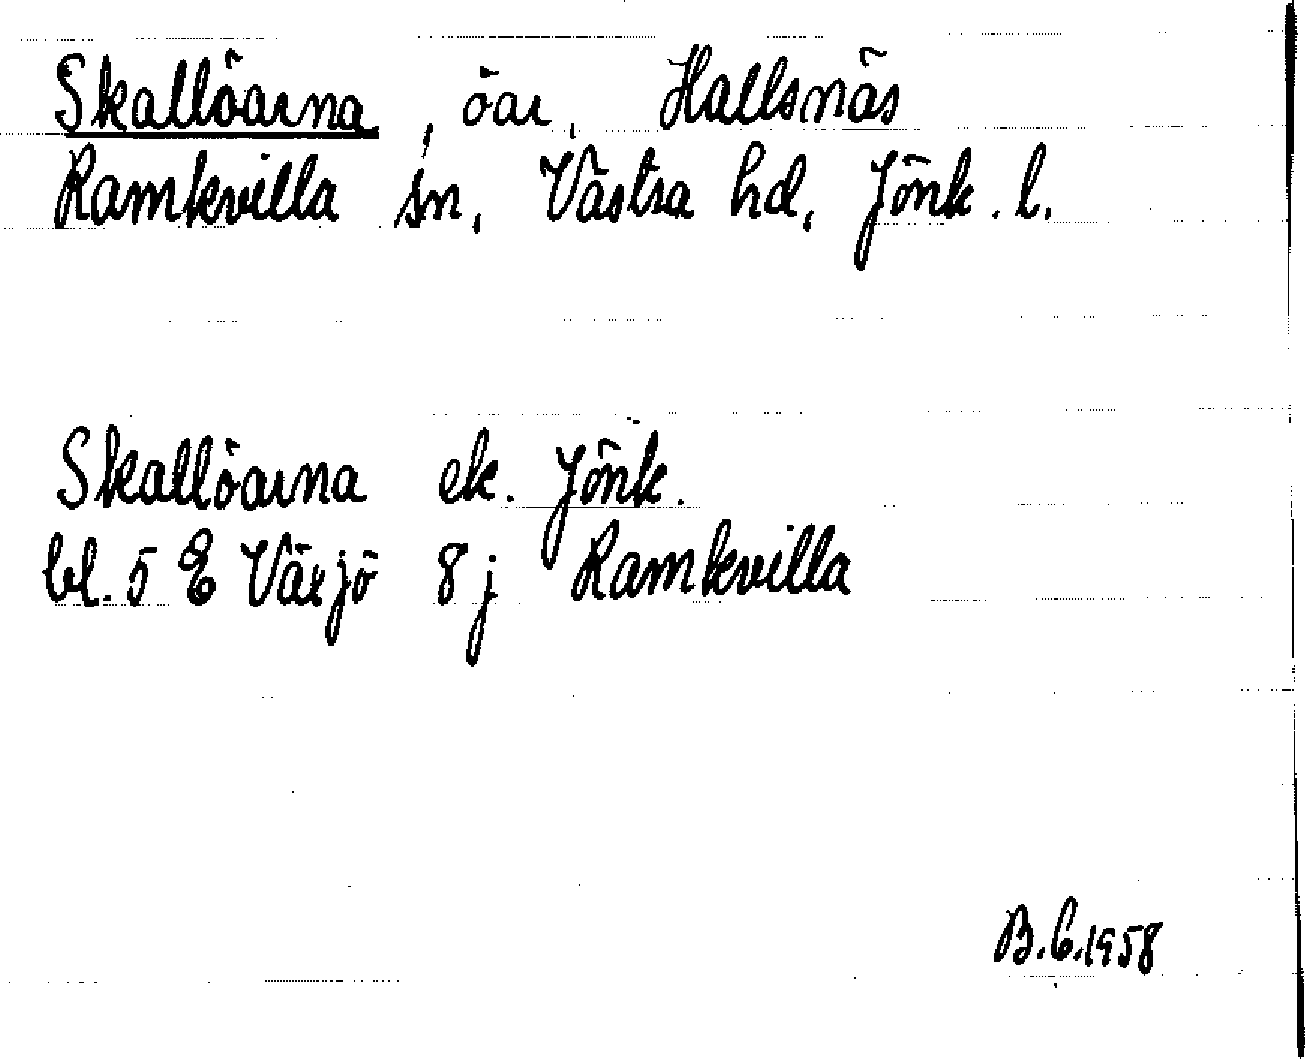 Skallöarna, öar, Hallsnäs
Ramkvilla sn, Västra hd, Jönk. l.
Skallöarna ek. Jönk.
bl. 5 E Växjö 8 j Ramkvilla
B.C.1958